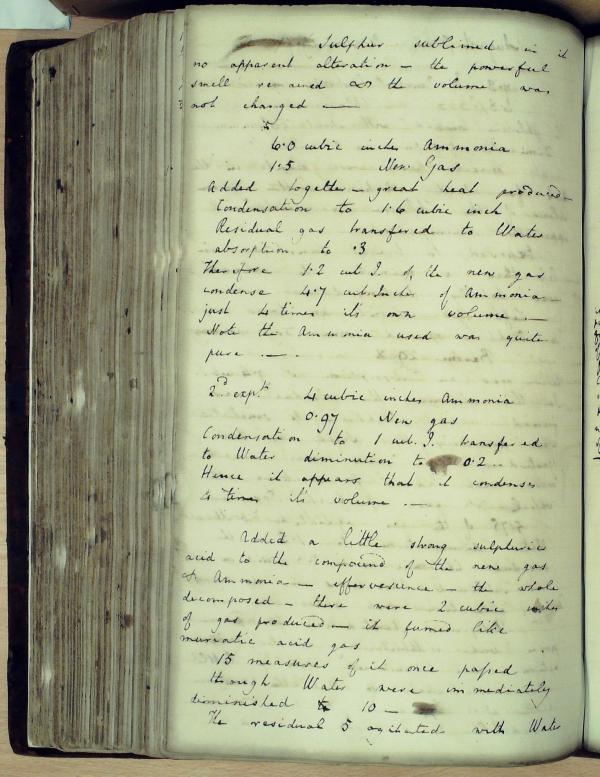 Sulphur sublimed in it
no apparent alteration – the powerful
smell remained & the volume was
not changed —
5
6.0 cubic inches Ammonia
1.5 New Gas
Added together – great heat produced –
Condensation to 1.6 cubic inch
Residual gas transfered to Water
absorption to .3
Therefore 1.2 cub I. of the new gas
condense 4.7 cub. Inches of Ammonia
just 4 times it's own volume. —
Note the Ammonia used was quite
pure. — .
2d expt. 4 cubic inches Ammonia
0.97 New gas
Condensation to 1 cub. I. transfered
to Water diminution to 0.2 ..
Hence it appears that it condenses
4 times it's volume. —
Added a little strong sulphuric
acid to the compound of the new gas
& Ammonia – effervescence – the whole
decomposed – there were 2 cubic inches
of gas produced – it fumed like
muriatic acid gas
15 measures of it once passed
through Water were immediately
diminished to 10 –
The residual 5 agitated with Water